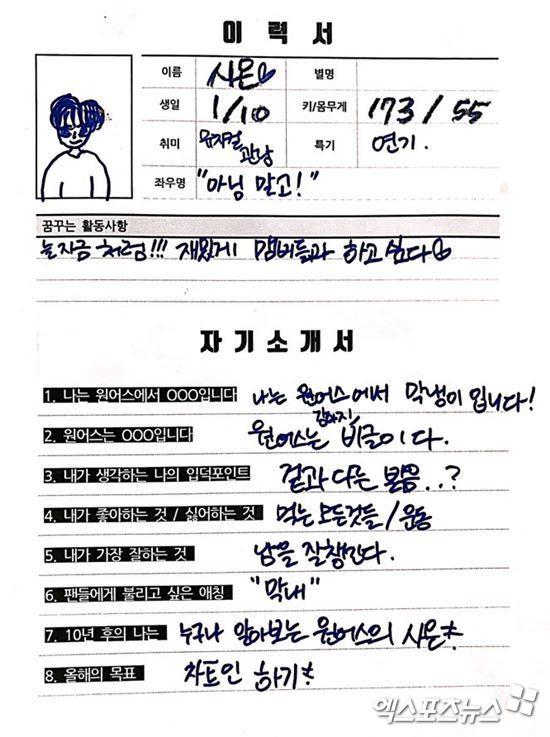 이 력 서
이름 시온 별명
생일 1/10 키/몸무게 173 / 55
취미 뮤지컬 관람 특기 연기.
좌우명 "아님 말고!"
꿈꾸는 활동사항
늘 지금 처럼!!! 재밌게 멤버들과 하고 싶다
자 기 소 개 서
1. 나는 원어스에서 OOO입니다 나는 원어스에서 막냉이 입니다!
2. 원어스는 OOO입니다 원어스는 강아지, 비글이다.
3. 내가 생각하는 나의 입덕포인트 겉과 다른 볼륨..?
4. 내가 좋아하는 것 / 싫어하는 것 먹는 모든것들/운동
5. 내가 가장 잘하는 것 남을 잘챙긴다.
6. 팬들에게 불리고 싶은 애칭 "막내"
7. 10년 후의 나는 누구나 알아보는 원어스의 시온
8. 올해의 목표 차트인 하기
엑스포츠뉴스